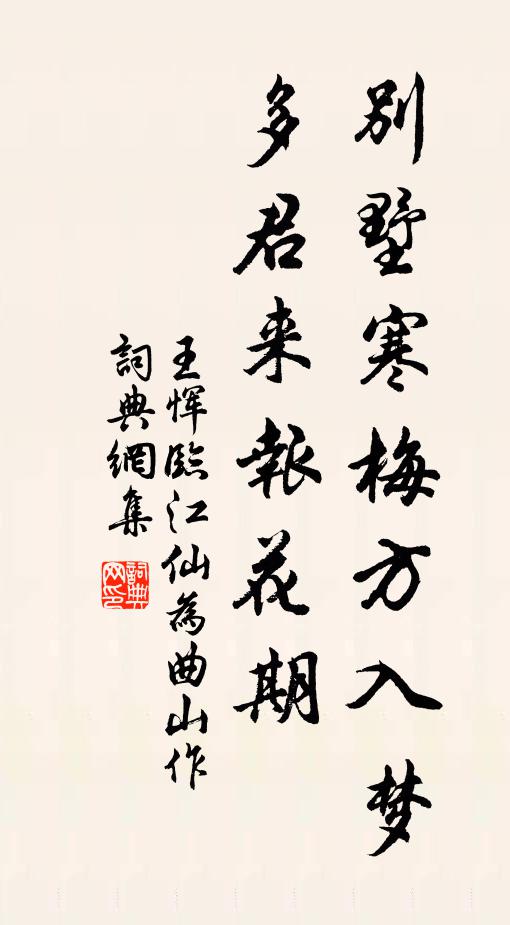 别墅寒梅方入梦
多君来報花期
王恽臨江仙為曲山作
詞典網集
詞典网印